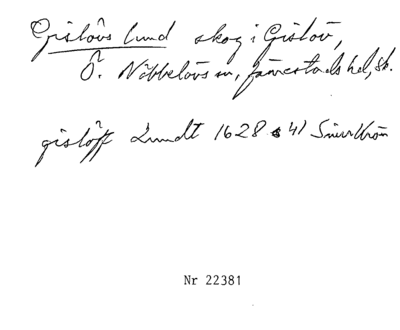 Gislövs lund skog i Gislöv,
Ö. Nöbbelövs sn, Järrestads hd, Sk.
gislöff Lundt 1628 s 41
Nr 22381